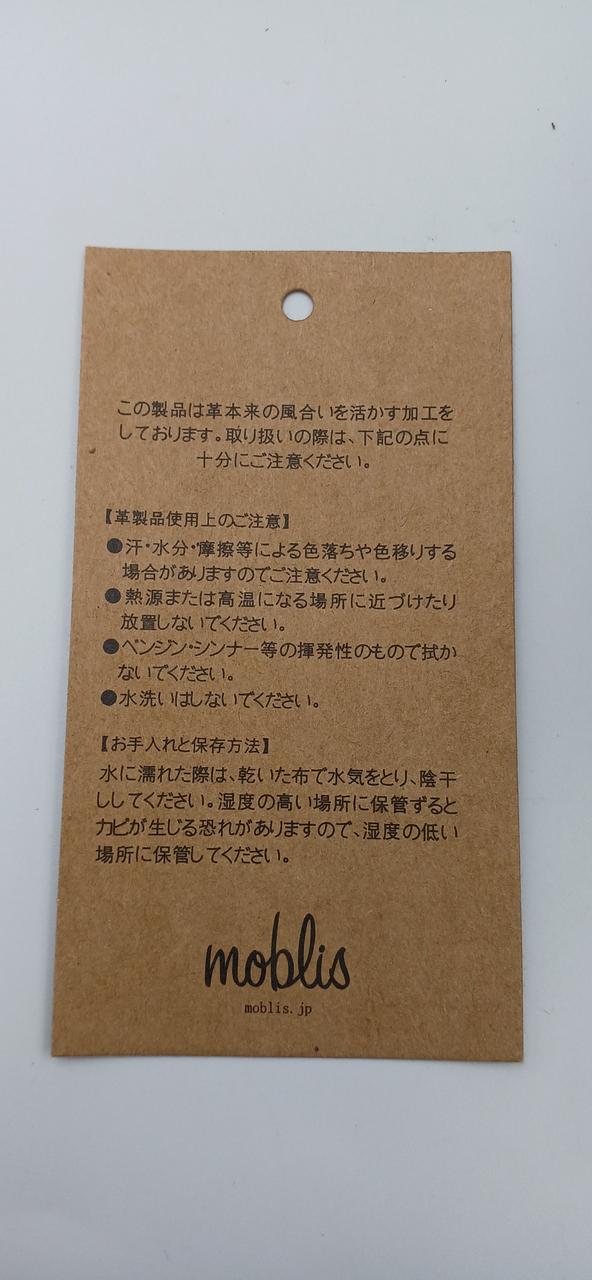 この製品は革本来の風合いを活かす加工を
しております。取り扱いの際は、下記の点に
十分にご注意ください。
【革製品使用上のご注意】
●汗・水分・摩擦等による色落ちや色移りする
場合がありますのでご注意ください。
●熱源または高温になる場所に近づけたり
放置しないでください。
●ベンジン・シンナー等の揮発性のもので拭か
ないでください。
●水洗いはしないでください。
【お手入れと保存方法】
水に濡れた際は、乾いた布で水気をとり、陰干
ししてください。湿度の高い場所に保管すると
カビが生じる恐れがありますので、湿度の低い
場所に保管してください。
moblis
moblis.jp